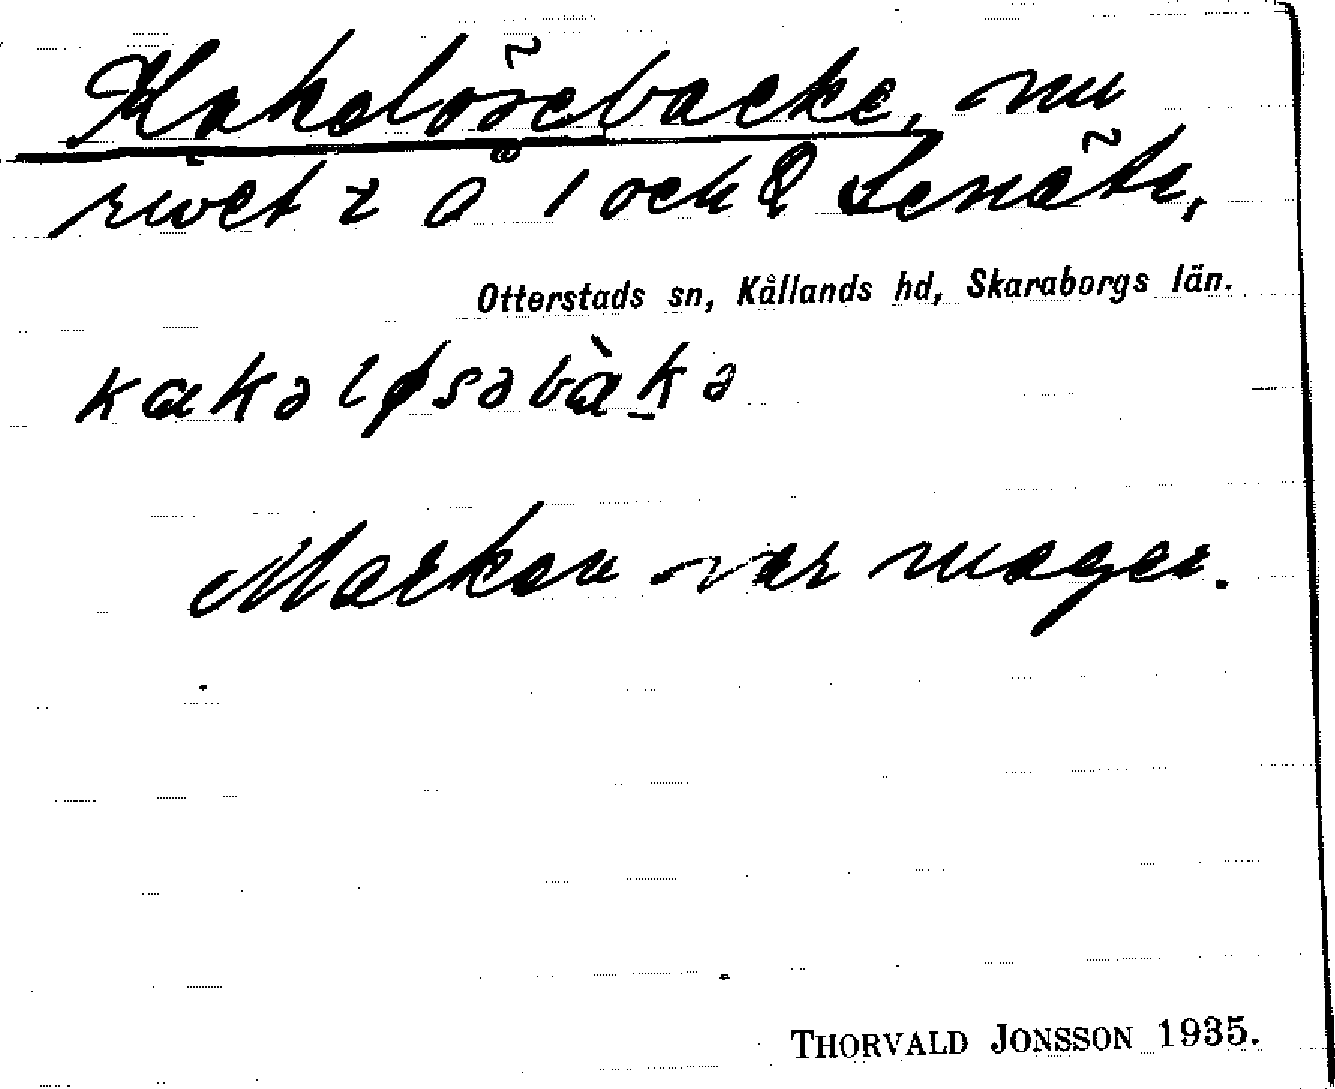 Kakelösebacke, nu
rivet t å 1 och 2 Senäte,
Otterstads sn, Kållands hd, Skaraborgs län.
kakəløsəbàkə
Marken var mager.
THORVALD JONSSON 1935.